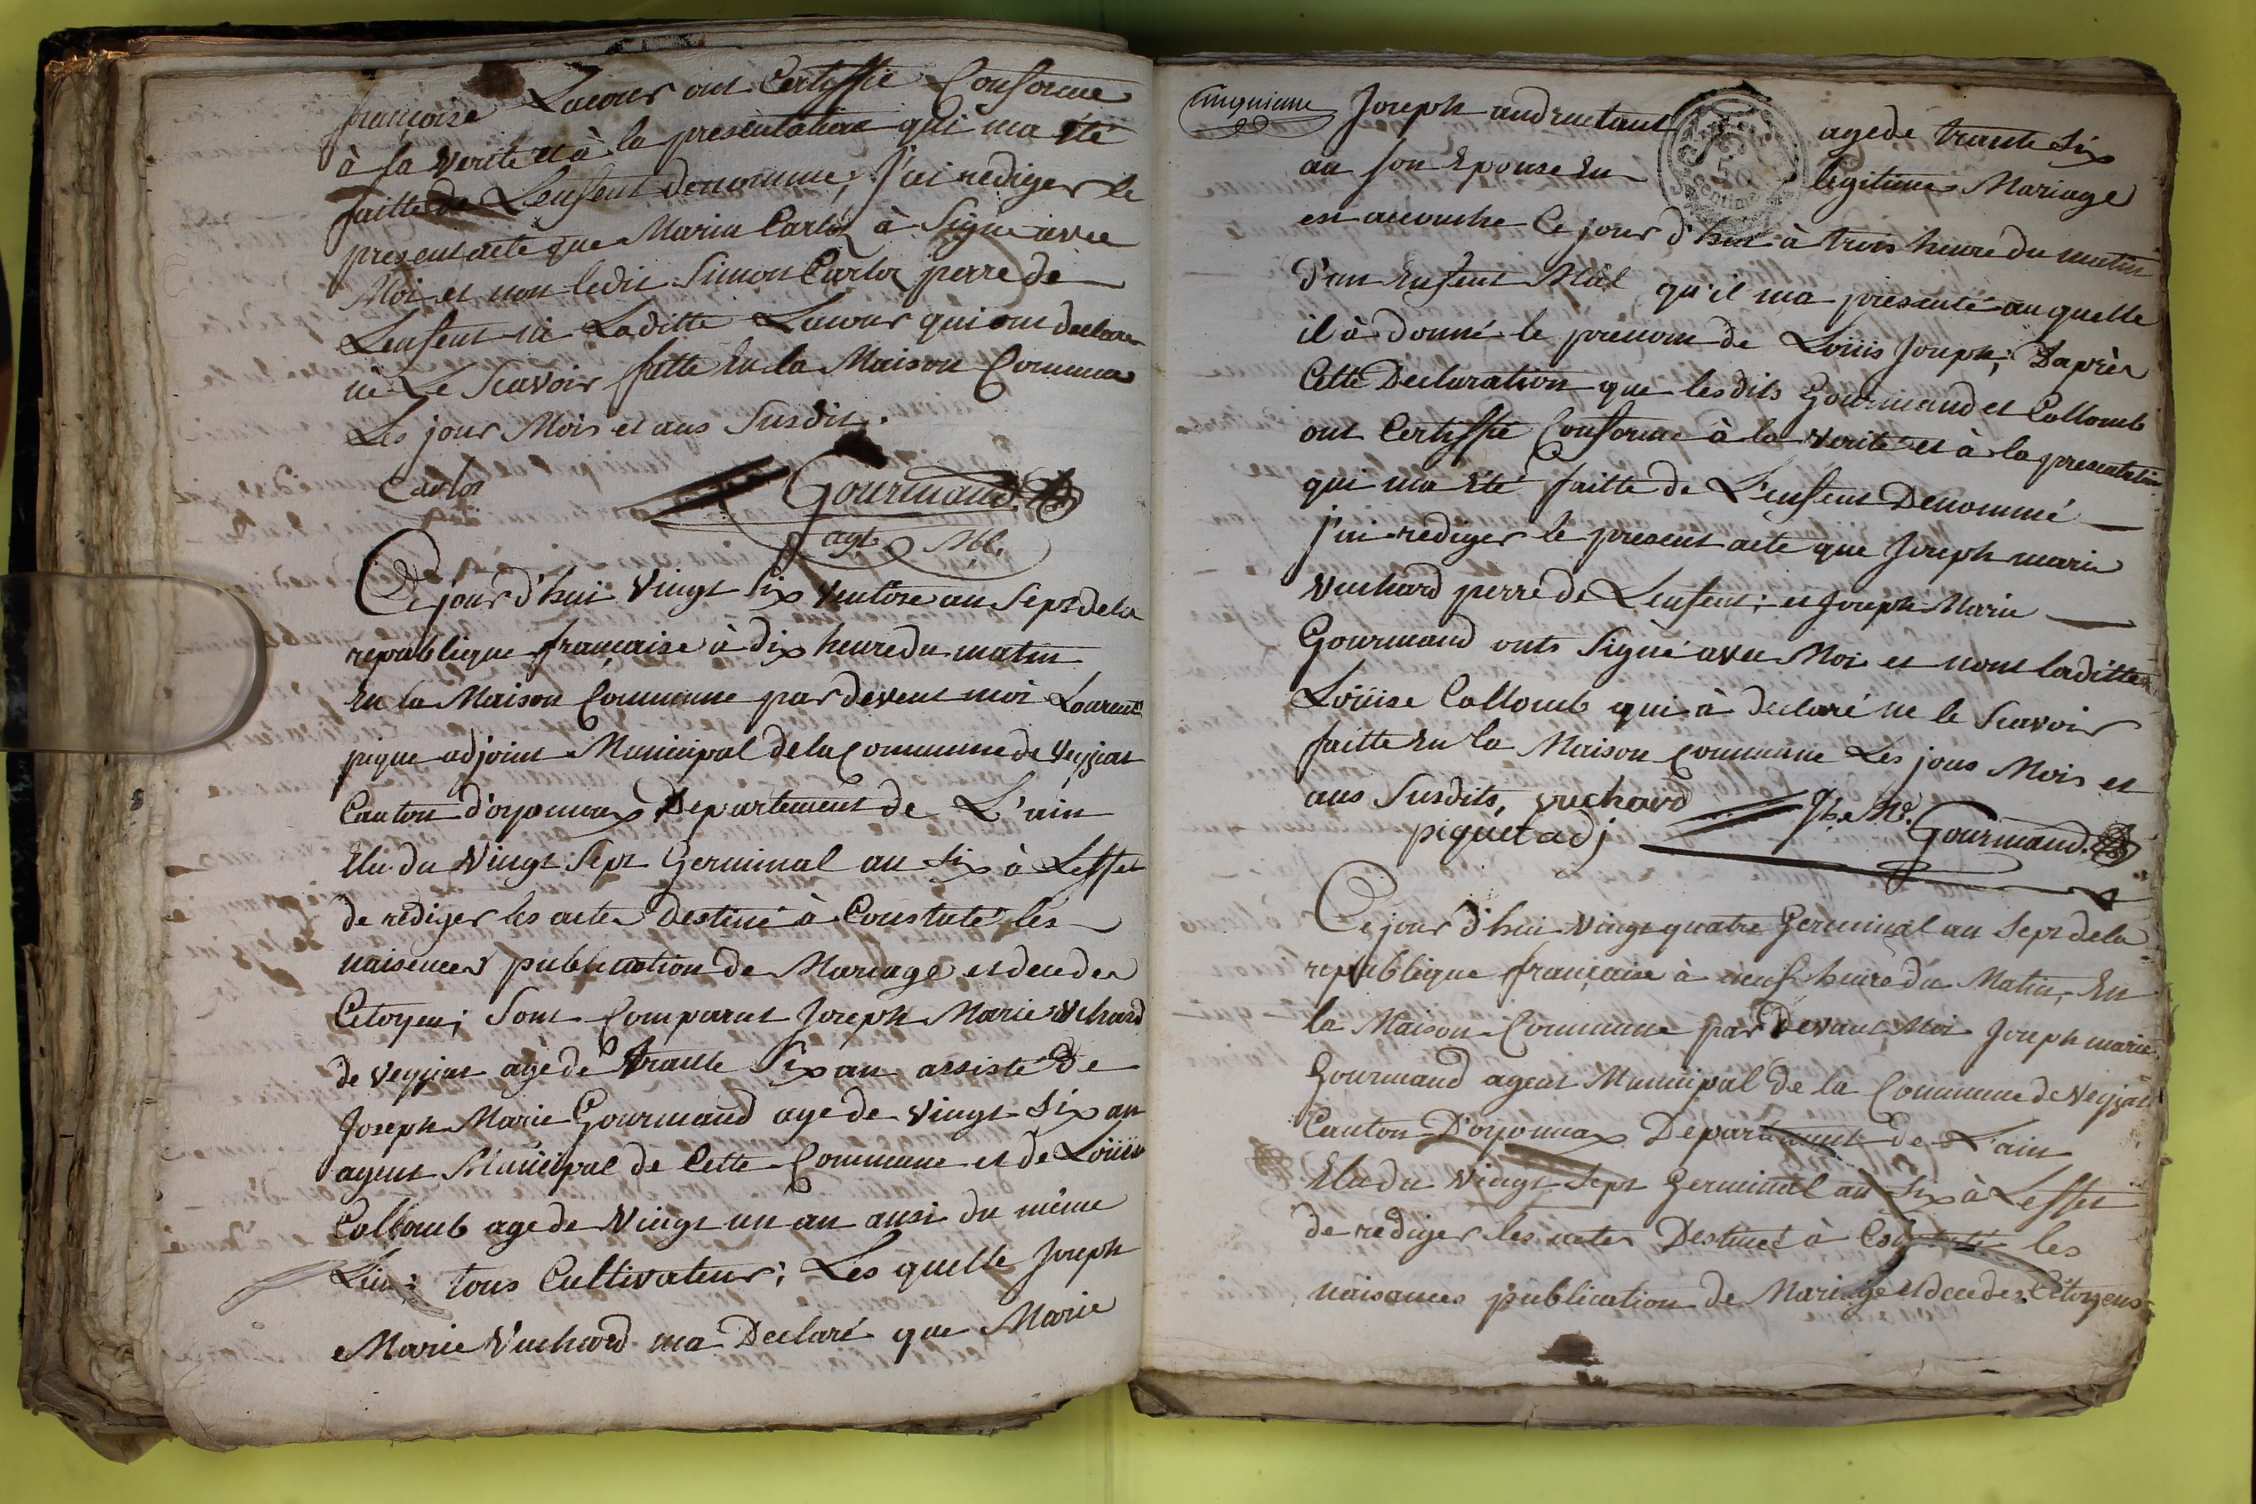 françoise Lacour ont Certiffié Conforme
à la verité et à la presentation qui ma été
faitte de Lenfent denommé, J'ai rediger le
present acte que Maria Carlod à Signé avec
Moi et non ledit Simon Carloz perre de
Lenfent ni Laditte Lacour qui ont declare
nè Le Scavoir fatte En la Maison Commune
Les jour Mois et ans Susdit.
Carloz Gourmand
agt Ml.
Ce jour d'hui vingt six ventose an Sept de la
republique française à dix heure du matin
En la Maison Commune par devent moi Laurent
pique adjoint Municipal de la Commune de veyziat
Canton d'oyonnax Departement de L'ain
Elu du vingt Sept Germinal an six à Leffet
de rediger les actes Destiné à Constaté les
naisences publication de Mariage et deces des
Citoyen; Sont Comparut Joseph Marie vuchard
de veyziat agé de trante Six an assisté De
Joseph Marie Gourmand age de vingt six an
agent Municipal de Cette Commune et de Loüise
Collomb age de vingt un an ausi du même
Lieu; tous Cultivateur; Les quelle Joseph
Marie Vuchard ma Declaré que Marie
Cinquieme
Joseph andruetant agé de trante six
an son Epouse En legitime Mariage
est accouche Ce jour d'hui à trois heure du matin
d'un Enfent Mâl qu'il ma presanté au quelle
il à donné le prenom de Loüis Joseph; D'après
Cette Declaration que lesdits Gourmand et Collomb
ont Certiffié Conforme à la verité et à la presentation
qui ma Eté faitte de L'enfent Denommé
j'ai rediger le present acte que Joseph marie
Vuchard perre de Lenfent; et Joseph Marie
Gourmand onts Signé avec Moi et nont laditte
Loüise Collomb qui à declaré ne le Scavoir
faitte En la Maison Commune Les jous Mois et
ans Susdits, vuchard Jh. Me. Gourmand
piquet adj
Ce jour d'hui vingt quatre Germinal an Sept de la
republique française à neuf heure du Matin, En
la Maison Commune par Devant Moi Joseph marie
Gourmand agent Municipal de la Commune de Veyziat
Canton D'oyonnax Departement de L'ain
Elu du vingt Sept Germinal an Six à Leffet
de rediger les actes Destinés à Constaté les
naisances publication de Mariage et deces des Citoyens